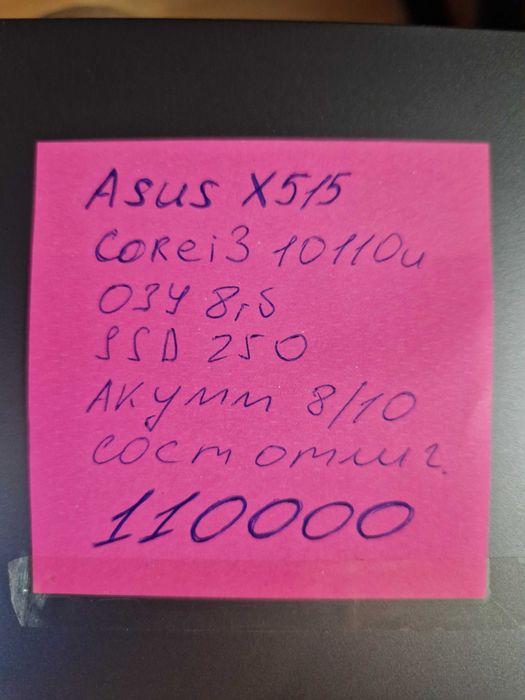 Asus X515
Corei3 10110u
ОЗУ 8гб
SSD 250
Акумм 8/10
сост отлиг.
110000